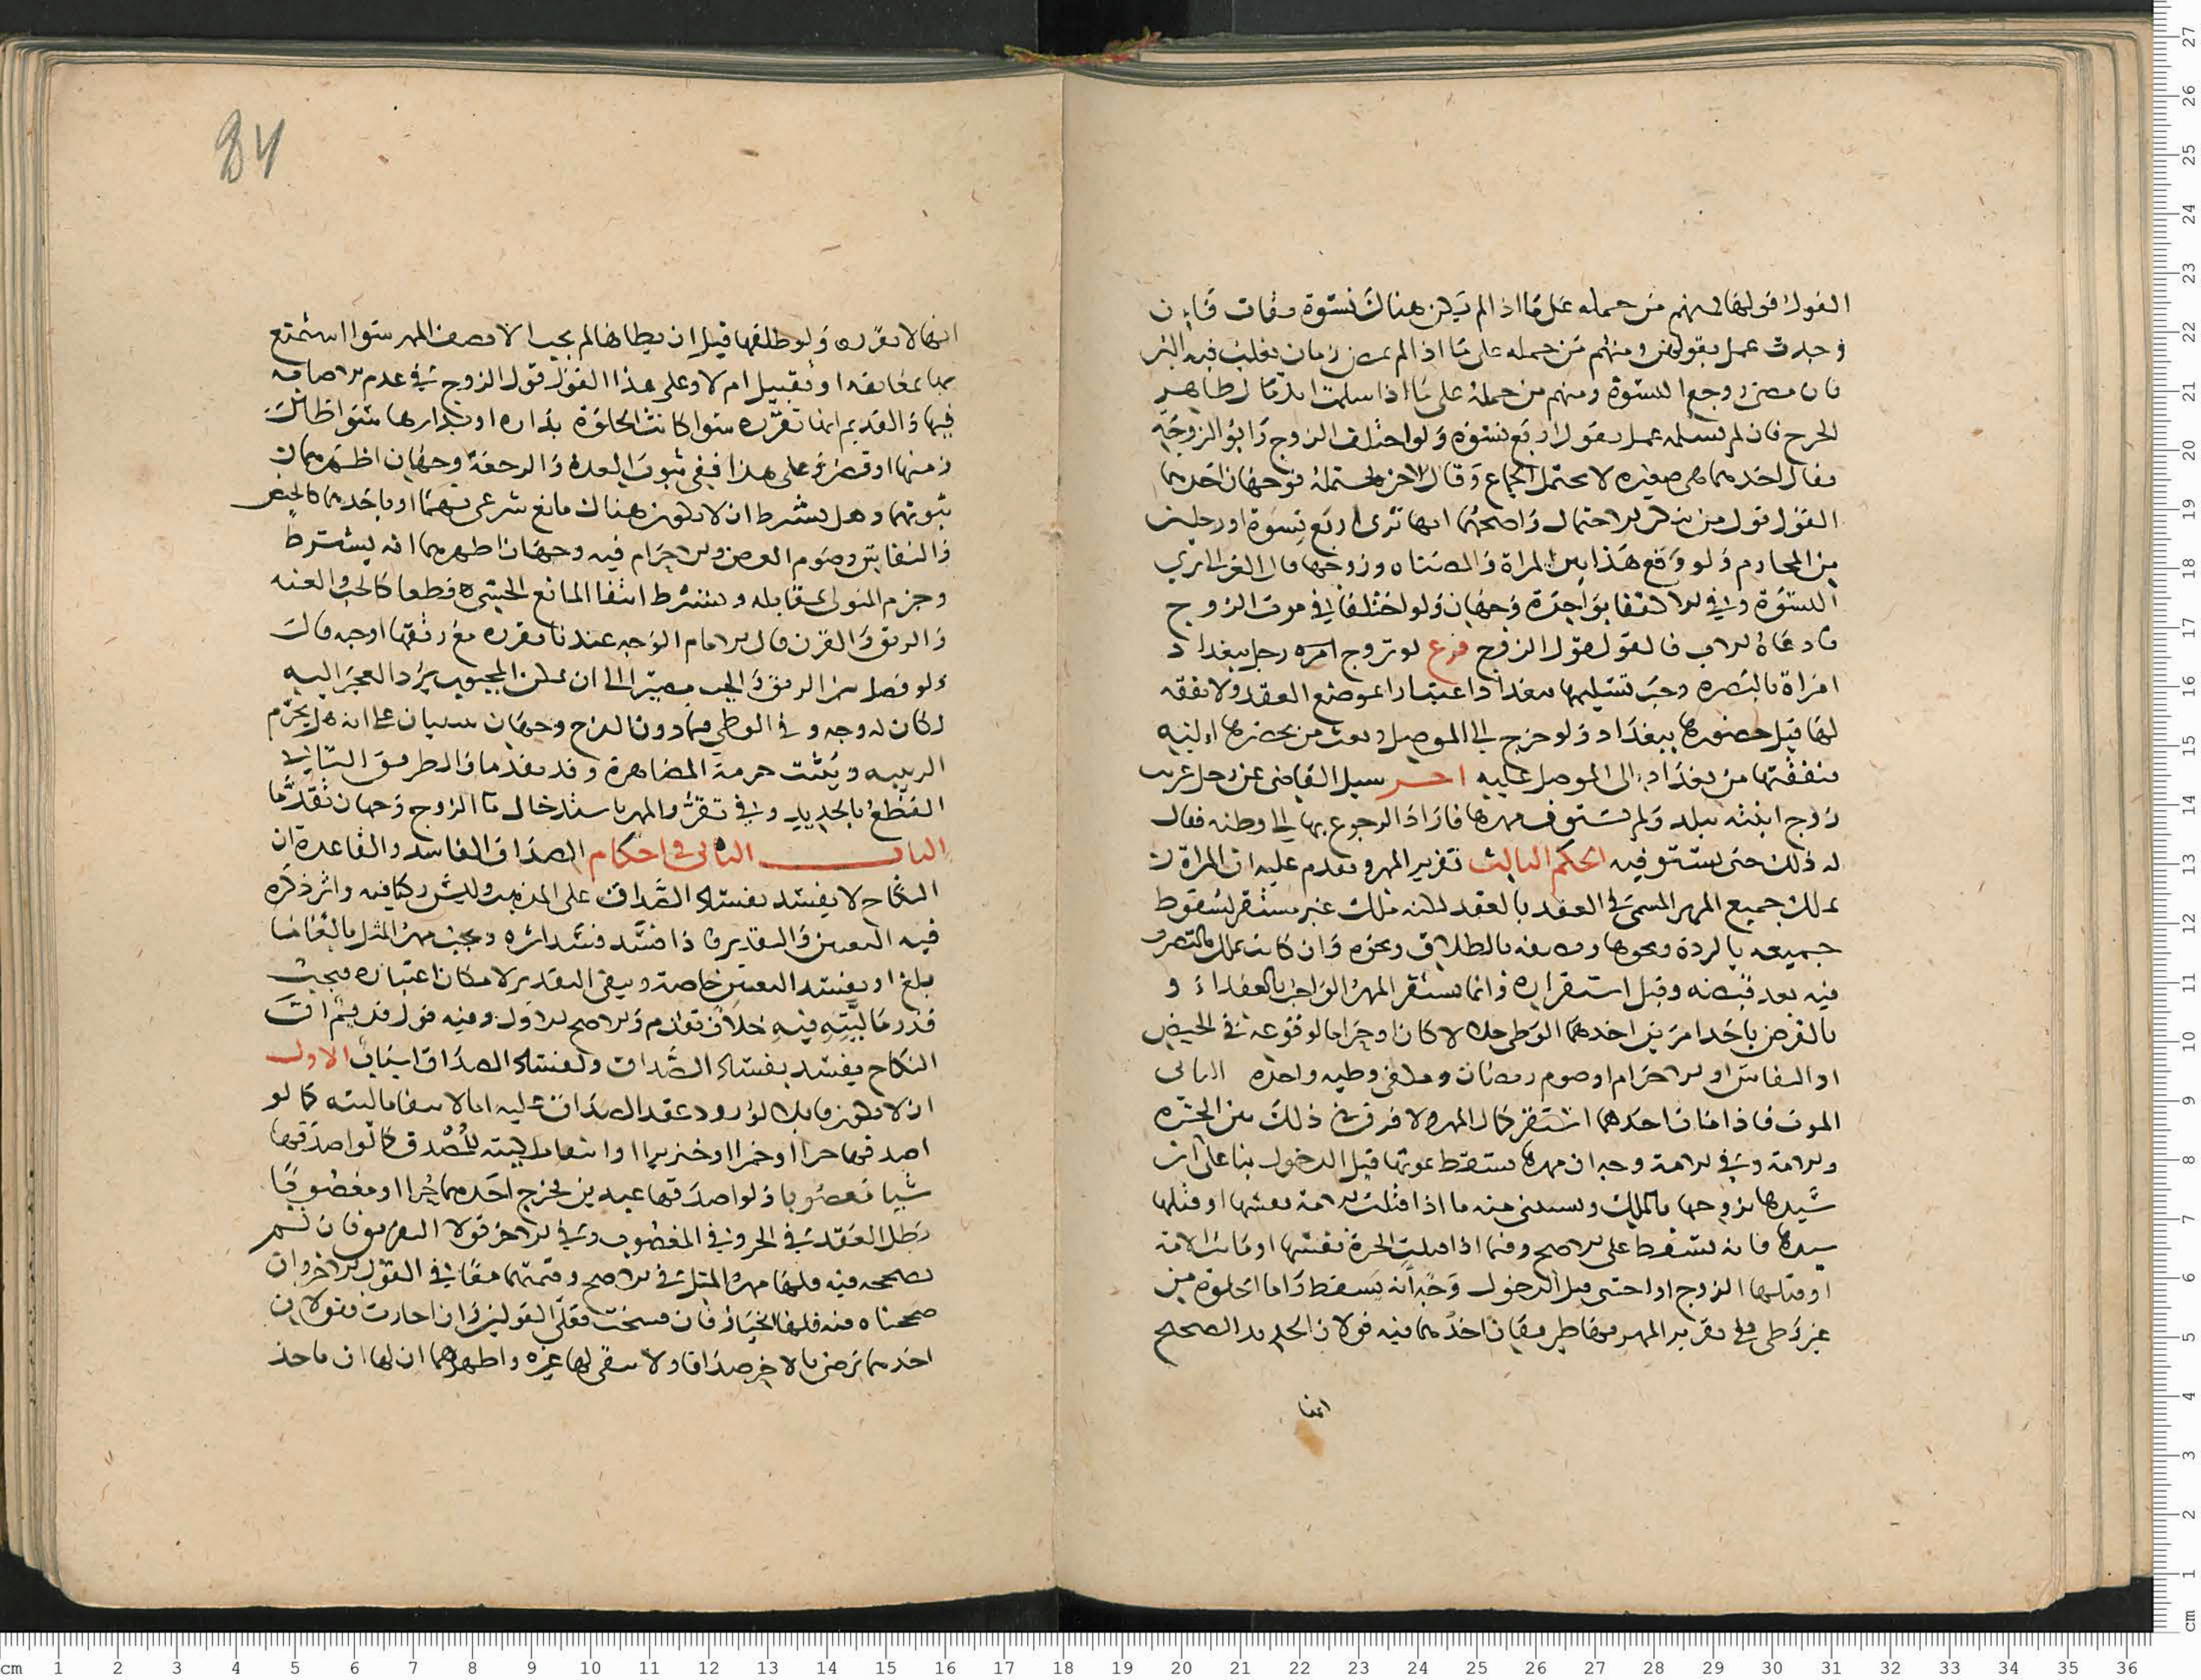 القول قولها فمنهم من حمله على ما اذا لم يكن هناك نسوة ثقات فان
وجدت عمل بقولهن ومنهم من حمله على ما اذا لم يمض زمان يغلب فيه البر
فان مضى روجع النسوة ومنهم من حمله على ما اذا سلمت اندمال ظاهر
الجرح فان لم نسلمه عمل بقول اربع نسوة ولو اختلف الزوج وابو الزوجة
فقال احدهما هى صغيره لا تحتمل الجماع وقال الاخر تحتمله فوجهان احدهما
القول قول من ينكر الاحتمال واصحهما انها ترى اربع نسوة او رجلين
من المحارم ولو وقع هذا بين المراة وزوجها قال الغزالى ترى
النسوة وفى الاكتفا بواحدة وجهان ولو اختلفا فى موت الزوج
فادعاه الاب فالقول قول الزوج فرع لو تزوج امره رجل ببغداد
امراة بالبصره وجب تسليمها ببغداد اعتبارا بموضع العقد ولا نفقه
لها قبل حضورها ببغداد ولو خرج الى الموصل وبعث من يحضرها اليه
فنفقتها من بغداد الى الموصل عليه اخر سيل القاضى عن رجل غريب
زوج ابنته ببلد ولم يستوف مهرها فاراد الرجوع بها الى وطنه فقال
له ذلك حتى يستوفيه الحكم الثالث تقرير المهر وتقدم عليه ان المراة
تملك جميع المهر المسمى فى العقد بالعقد لكنه ملك غير مستقر لسقوط
جميعه بالردة ونحوها ونصفه بالطلاق ونحوه وان كانت تملك التصرف
فيه بعد قبضه وقبل استقراره وانما يستقر المهر الواجب بالعقد او
بالفرض باحد امرين احدهما الوطى حلالا كان او حراما لوقوعه فى الحيض
او النفاس او الاحرام او صوم رمضان ويكفى وطيه واحدة الثانى
الموت فاذا مات احدهما استقر كمال المهر ولا فرق فى ذلك بين الحرة
والامة وفى الامة وجه ان مهرها يسقط بموتها قبل الدخول بنا على ان
سيدها يزوجها بالملك ويستثنى منه ما اذا قتلت الامة نفسها او قتلها
سيدها فانه يسقط على الاصح وفيما اذا قتلت الحرة نفسها او ماتت الامة
او قتلها الزوج او اجنبى قبل الدخول وجه انه يسقط واما الخلوة من
غير وطى ففى تقرير المهر بها طريقان احدهما فيه قولان الجديد الصحيح
انها
84
انها لا تقرره ولو طلقها قبل ان يطاها لم يجب الا نصف المهر سوا استمتع
بها بمعانقه او تقبيل ام لا وعلى هذا القول قول الزوج فى عدم الاصابه
فيها والقديم انها تقرره سوا كانت الخلوة بداره او بدارها سوا طال
زمنها او قصر وعلى هذا ففى ثبوت العدة والرجعة وجهان اظهرهما
ثبوتهما وهل يشترط ان لا يكون هناك مانع شرعى بهما او باحدهما كالحيض
والنفاس وصوم الفرض والاحرام فيه وجهان اظهرهما انه يشترط
وجزم المتولى بمقابله ويشترط انتفا المانع الحسى قطعا كالجب والعنه
والرتق والقرن قال الامام الوجه عندنا تقرره مع رتقها اوجه قال
ولو فصل بين الرتق والجب مصيرا الى ان المجبوب يرد العجز اليه
لكان له وجه وفى الوطى فيما دون الفرج وجهان مبنيان على انه هل يحرم
الربيبه ويثبت حرمة المصاهرة وقد تقدما والطريق الثانى
القطع بالجديد وفى تقرر المهر باستدخال ما الزوج وجهان تقدما
الباب الثانى فى احكام الصداق الفاسد والقاعدة ان
النكاح لا يفسد بفساد الصداق على المذهب وليس ركنا فيه واثر ذكره
فيه التعيين والتقدير فاذا فسد فسد اثره ويجب مهر المثل بالغا ما
بلغ او يفسد التعيين خاصة ويبقى التقدير لامكان اعتباره فيجب
قدر ماليته فيه خلاف تقدم والاصح الاول وفيه قول قديم ان
النكاح يفسد بفساد الصداق ولفساد الصداق اسباب الاول
ان لا يكون قابلا لورود عقد الصداق عليه اما لانتفا ماليته كما لو
اصدقها حرا او خمرا او خنزيرا او انتفا ملكيته للمصدق كما لو اصدقها
شيا مغصوبا ولو اصدقها عبدين فخرج احدهما حرا او مغصوبا
بطل العقد فى الحر وفى المغصوب وفى الاخر قولا التفريق فان لم
نصححه فيه فلها مهر المثل فى الاصح وقيمتهما معا فى القول الاخر وان
صححناه فيه فلها الخيار فان فسخت فعلى القولين وان اجازت فقولان
احدهما ترضى بالاخر صداقا ولا شى لها غيره واظهرهما ان لها ان تاخذ